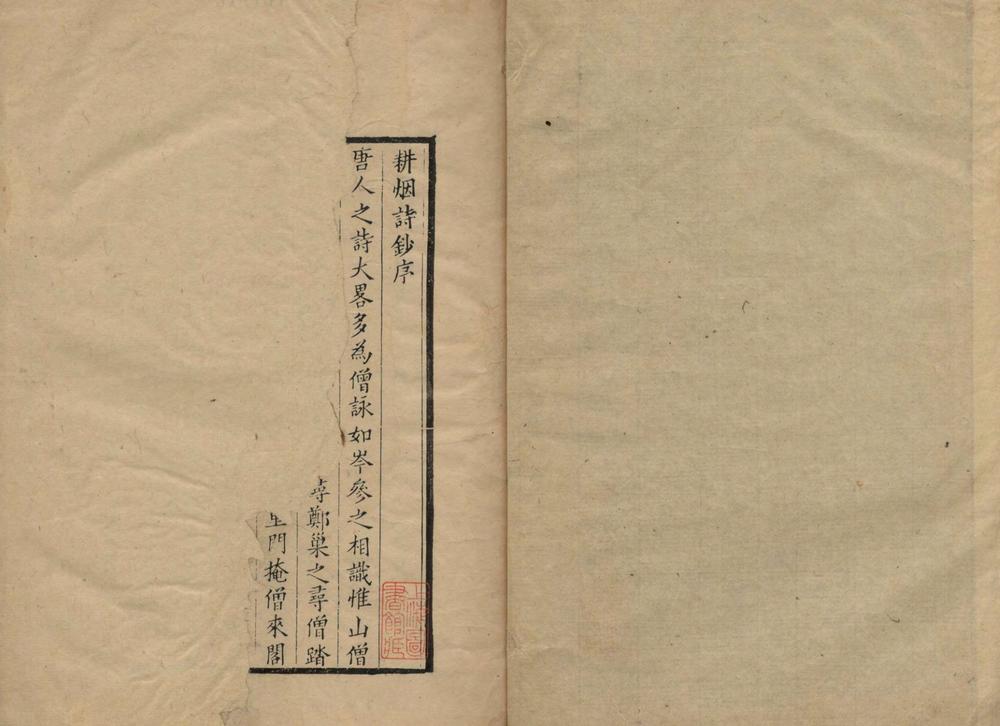 耕烟詩鈔序
唐人之詩大畧多為僧詠如岑參之相識惟山僧
尋鄭巢之尋僧踏
門掩僧來閣
上海圖
書館藏